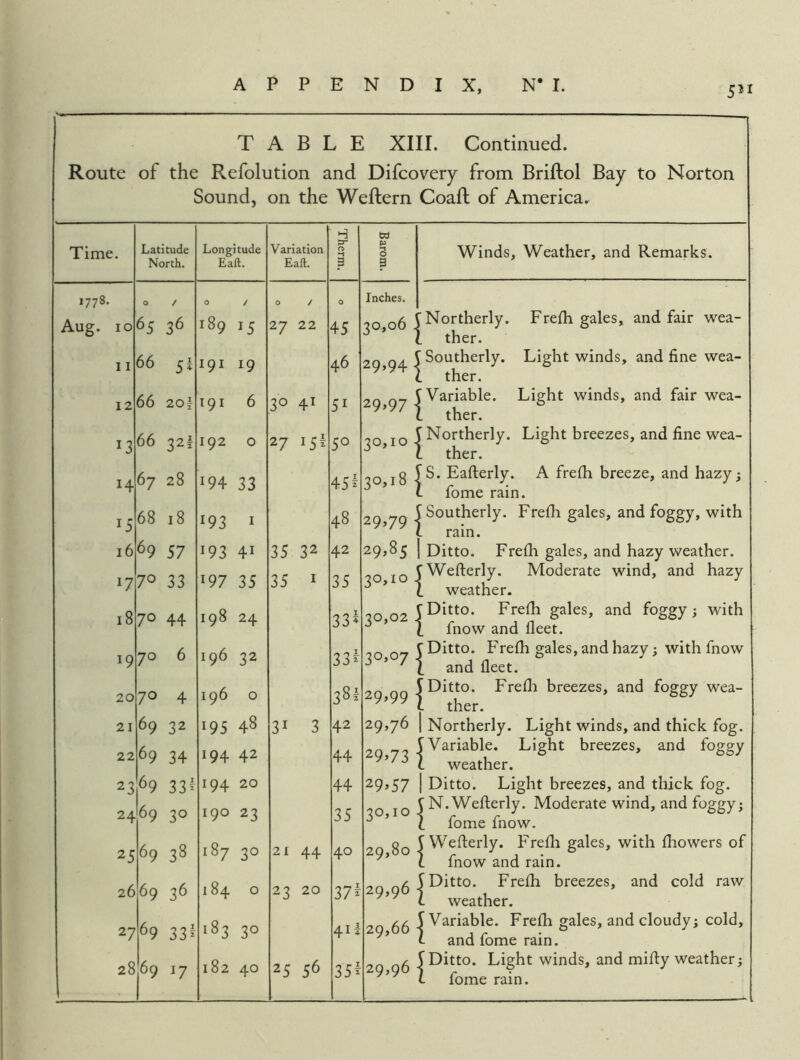 APPENDIX, N° I. 511
TABLE XIII. Continued.
Route of the Reſolution and Diſcovery from Briſtol Bay to Norton
Sound, on the Weſtern Coaſt of America.
Time. Latitude North. Longitude Eaſt. Variation Eaſt. Therm. Barom. Winds, Weather, and Remarks.
1778. o / o / o / o Inches.
Aug. 10 65 36 189 15 27 22 45 30,06 Northerly. Freſh gales, and fair wea-
ther.
11 66 5½ 191 19 46 29,94 Southerly. Light winds, and fine wea-
ther.
12 66 20½ 191 6 30 41 51 29,97 Variable. Light winds, and fair wea-
ther.
13 66 32½ 192 0 27 15½ 50 30,10 Northerly. Light breezes, and fine wea-
ther.
14 67 28 194 33 45½ 30,18 S. Eaſterly. A freſh breeze, and hazy;
ſome rain.
15 68 18 193 1 48 29,79 Southerly. Freſh gales, and foggy, with
rain.
16 69 57 193 41 35 32 42 29,85 Ditto. Freſh gales, and hazy weather.
17 70 33 197 35 35 1 35 30,10 Weſterly. Moderate wind, and hazy
weather.
18 70 44 198 24 33½ 30,02 Ditto. Freſh gales, and foggy; with
ſnow and ſleet.
19 70 6 196 32 33½ 30,07 Ditto. Freſh gales, and hazy; with ſnow
and ſleet.
20 70 4 196 0 38½ 29,99 Ditto. Freſh breezes, and foggy wea-
ther.
21 69 32 195 48 31 3 42 29,76 Northerly. Light winds, and thick fog.
22 69 34 194 42 44 29,73 Variable. Light breezes, and foggy
weather.
23 69 33½ 194 20 44 29,57 Ditto. Light breezes, and thick fog.
24 69 30 190 23 35 30,10 N. Weſterly. Moderate wind, and foggy;
ſome ſnow.
25 69 38 187 30 21 44 40 29,80 Weſterly. Freſh gales, with ſhowers of
ſnow and rain.
26 69 36 184 0 23 20 37½ 29,96 Ditto. Freſh breezes, and cold raw
weather.
27 69 33½ 183 30 41½ 29,66 Variable. Freſh gales, and cloudy; cold,
and ſome rain.
28 69 17 182 40 25 56 35½ 29,96 Ditto. Light winds, and miſty weather;
ſome rain.